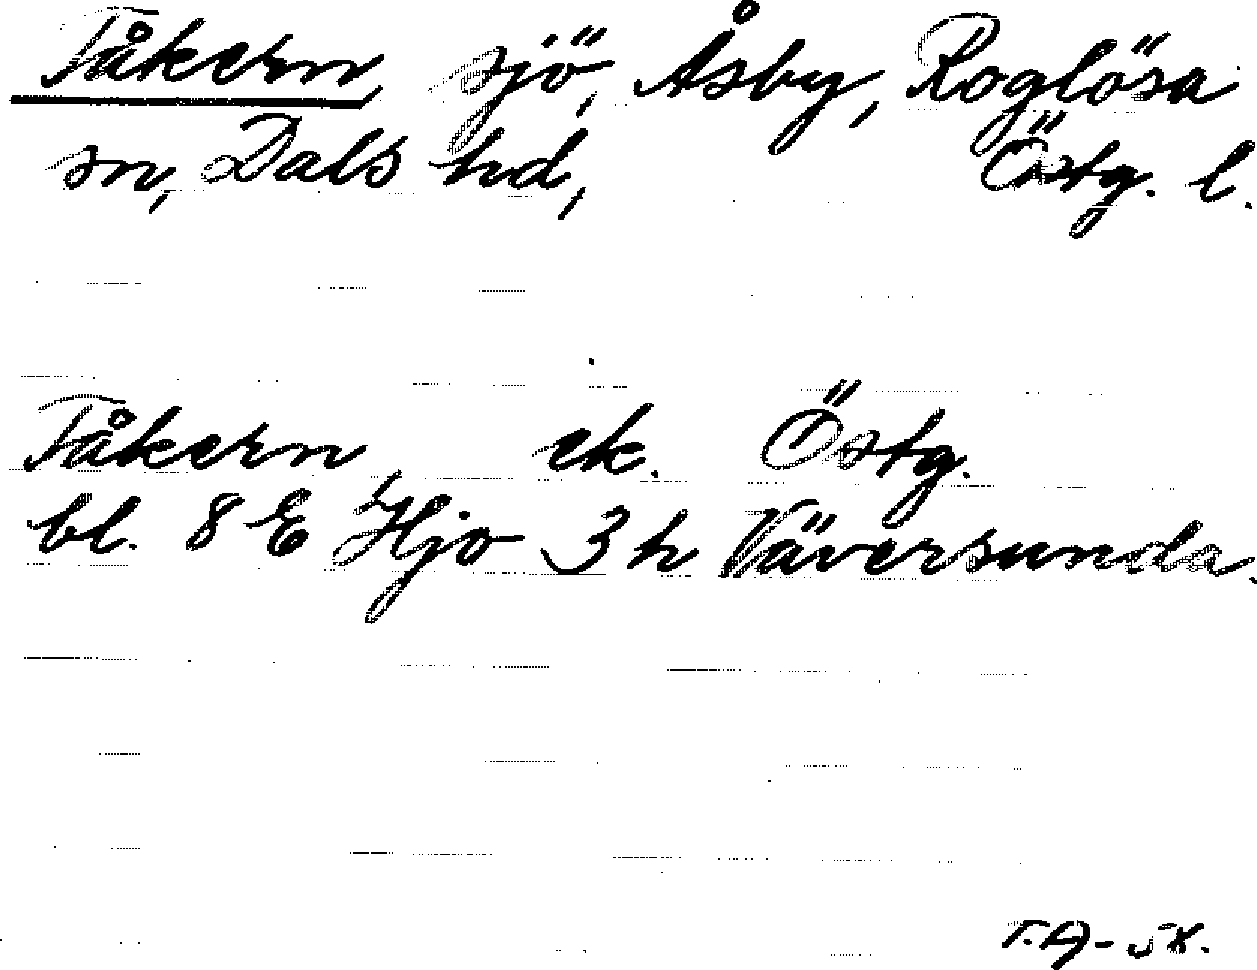 Tåkern, sjö, Åsby, Roglösa
sn, Dals hd, Östg. l.
Tåkern ek. Östg.
bl. 8 E Hjo 3 h Väversunda.